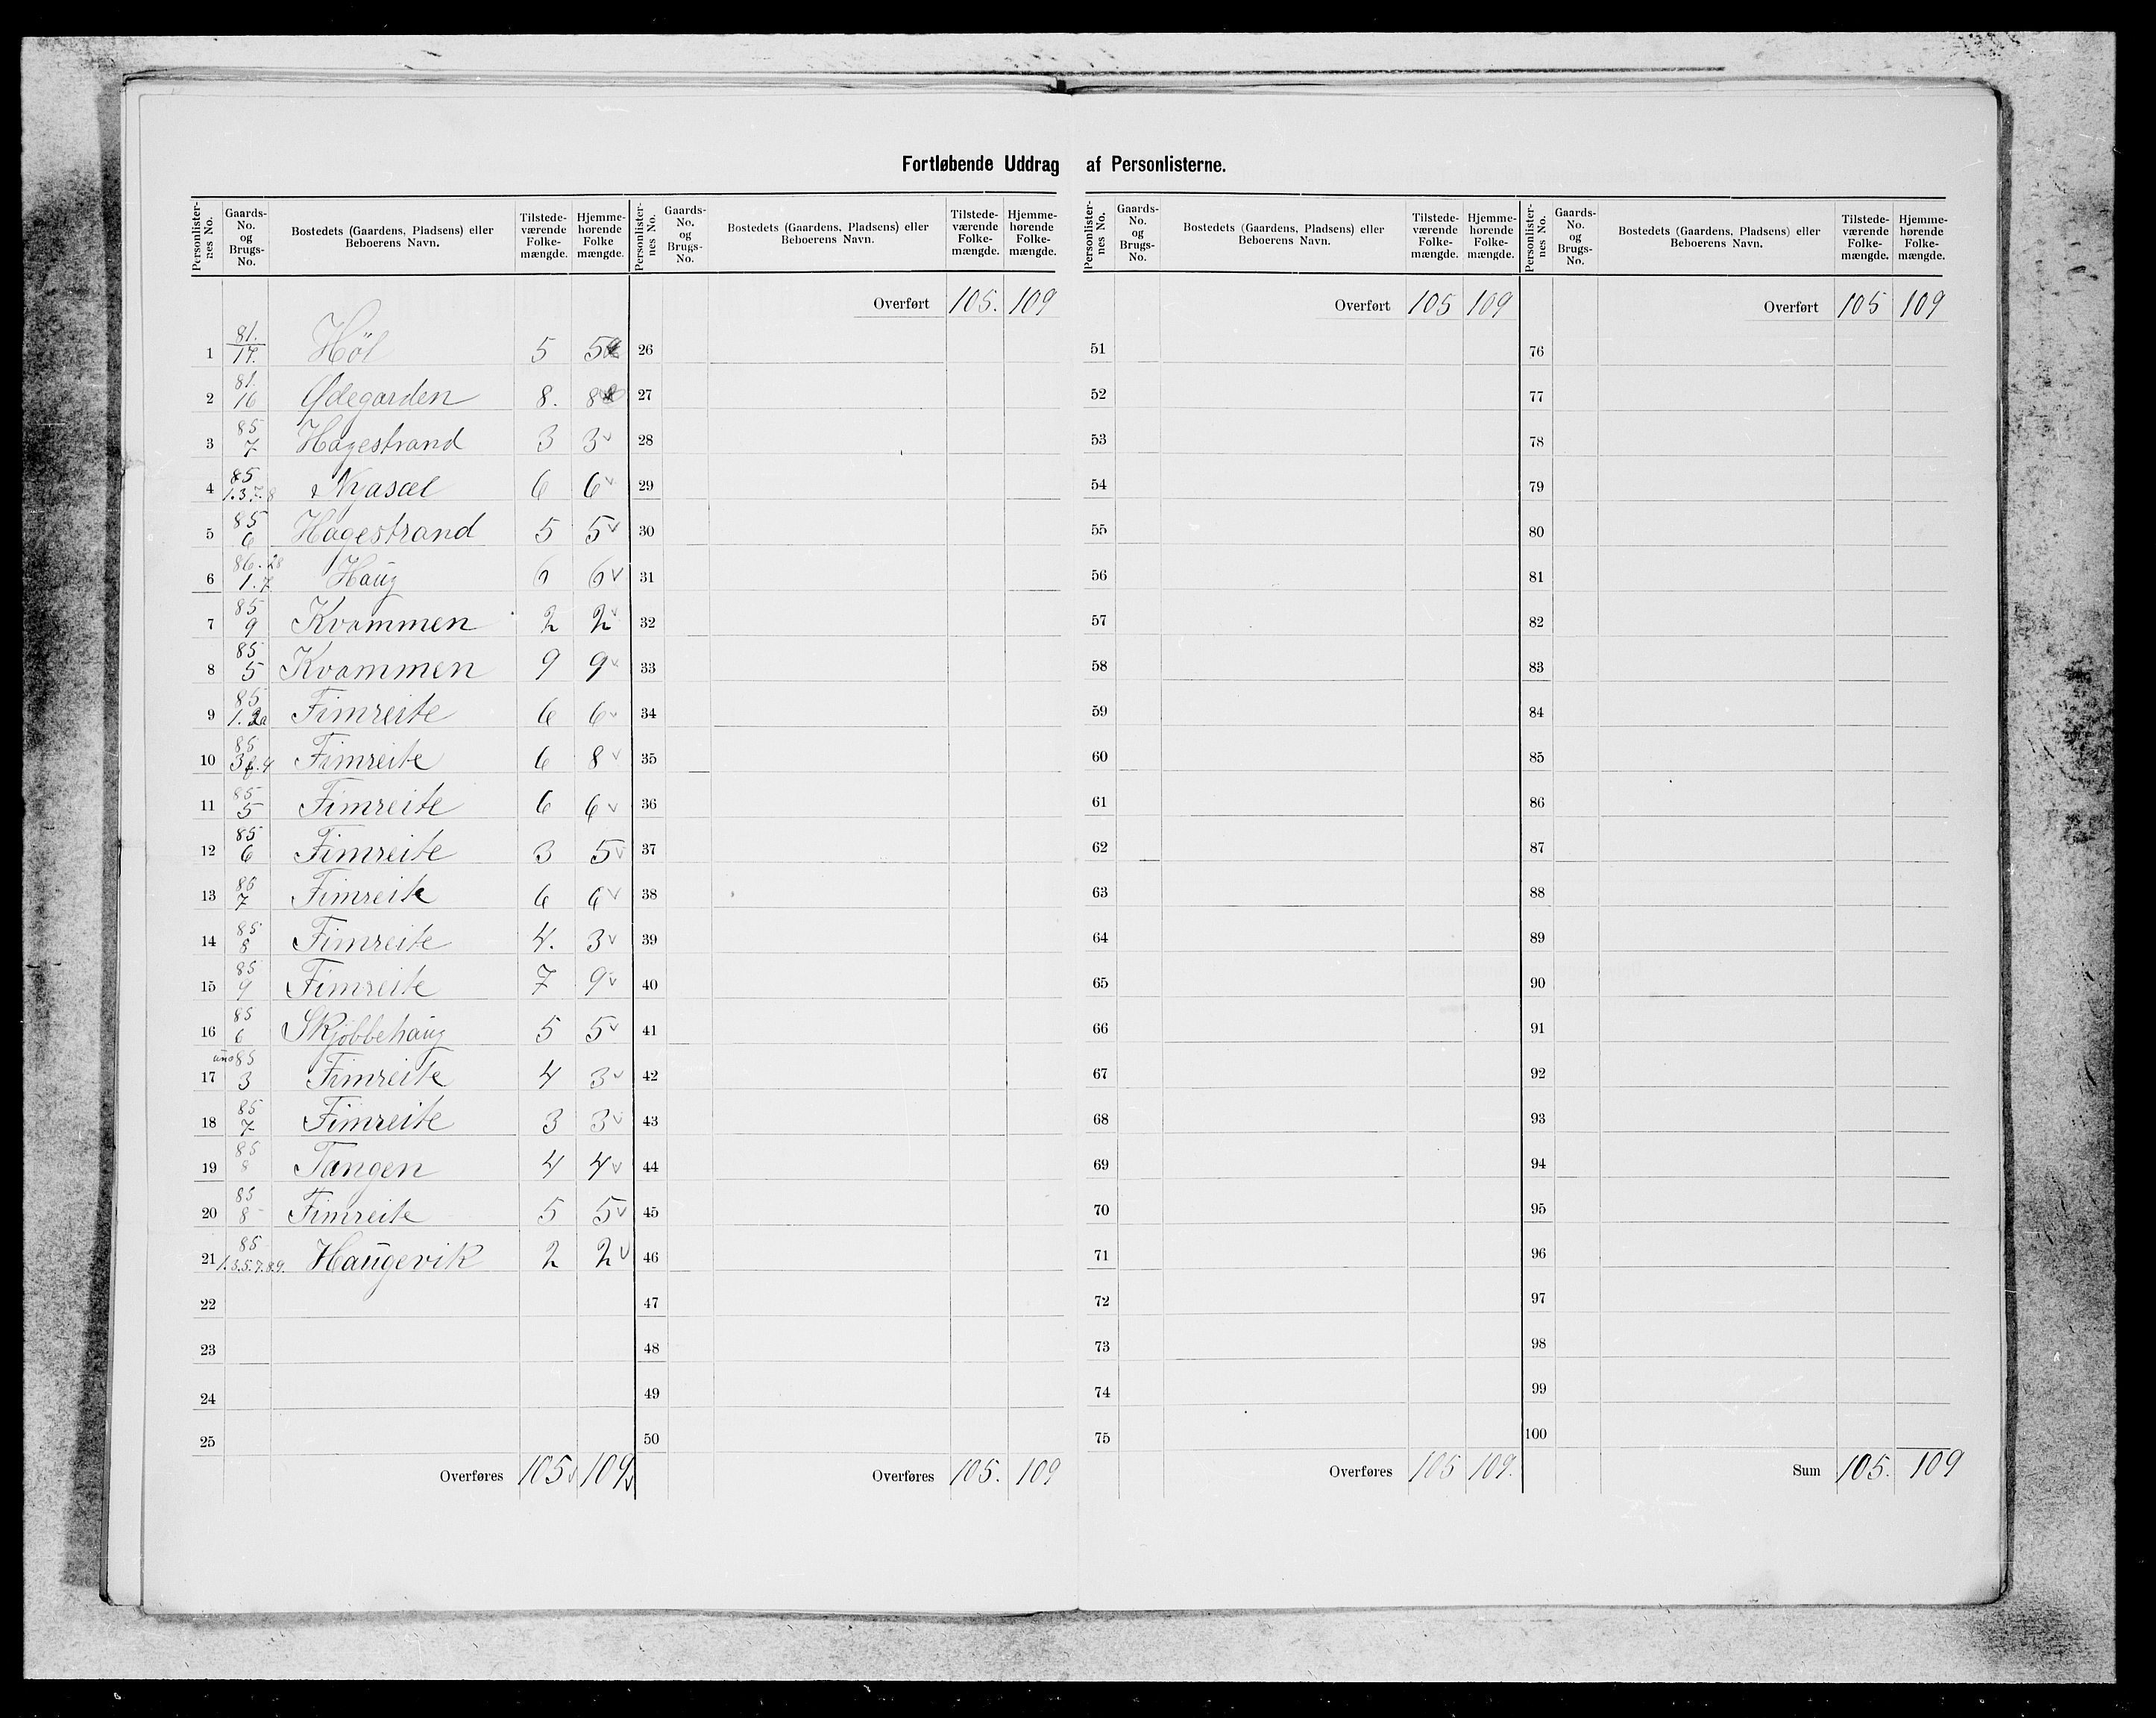 Fortløbende Uddrag af Personlisterne.
Personlister-nes No. Gaards-No. og Brugs-No. Bostedets (Gaardens, Pladsens) eller Beboerens Navn. Tilstede-værende Folke-mængde. Hjemme-hørende Folke mængde.
1 81. 17. Høl 5 5
2 81. 16 Ødegarden 8. 8
3 85 7 Hagestrand 3 3 v
4 85 1.3.7.8 Nyasæl 6 6 v
5 85 6 Hagestrand 5 5 v
6 86.28 1.7 Haug 6 6 v
7 85 9 Kvammen 2 2 v
8 85 5 Kvammen 9 9 v
9 85 1. 2a Fimreite 6 6 v
10 85 3 6.4 Fimreite 6 8 v
11 85 5 Fimreite 6 6 v
12 85 6 Fimreite 3 5 v
13 85 7 Fimreite 6 6 v
14 85 8 Fimreite 4. 3 v
15 85 9 Fimreite 7 9 v
16 85 6 Skjøbbehaug 5 5 v
17 85 3 Fimreite 4 3 v
18 85 7 Fimreite 3 3 v
19 85 8 Tangen 4 4 v
20 85 8 Fimreite 5 5 v
21 85 1.3.5.7.8.9. Haugevik 2 2 v
22
23
24
25
Overføres 105 v 109 v
Personlister-nes No. Gaards-No. og Brugs-No. Bostedets (Gaardens, Pladsens) eller Beboerens Navn. Tilstede-værende Folke-mængde. Hjemme-hørende Folke-mængde.
Overført 105. 109
26
27
28
29
30
31
32
33
34
35
36
37
38
39
40
41
42
43
44
45
46
47
48
49
50
Overføres 105. 109
Personlister-nes No. Gaards-No. og Brugs-No. Bostedets (Gaardens, Pladsens) eller Beboerens Navn. Tilstede-værende Folke-mængde. Hjemme-hørende Folke-mængde.
Overført 105 109
51
52
53
54
55
56
57
58
59
60
61
62
63
64
65
66
67
68
69
70
71
72
73
74
75
Overføres 105 109.
Personlister-nes No. Gaards-No. og Brugs-No. Bostedets (Gaardens, Pladsens) eller Beboerens Navn. Tilstede-værende Folke-mængde. Hjemme-hørende Folke-mængde.
Overført 105 109
76
77
78
79
80
81
82
83
84
85
86
87
88
89
90
91
92
93
94
95
96
97
98
99
100
Sum 105. 109